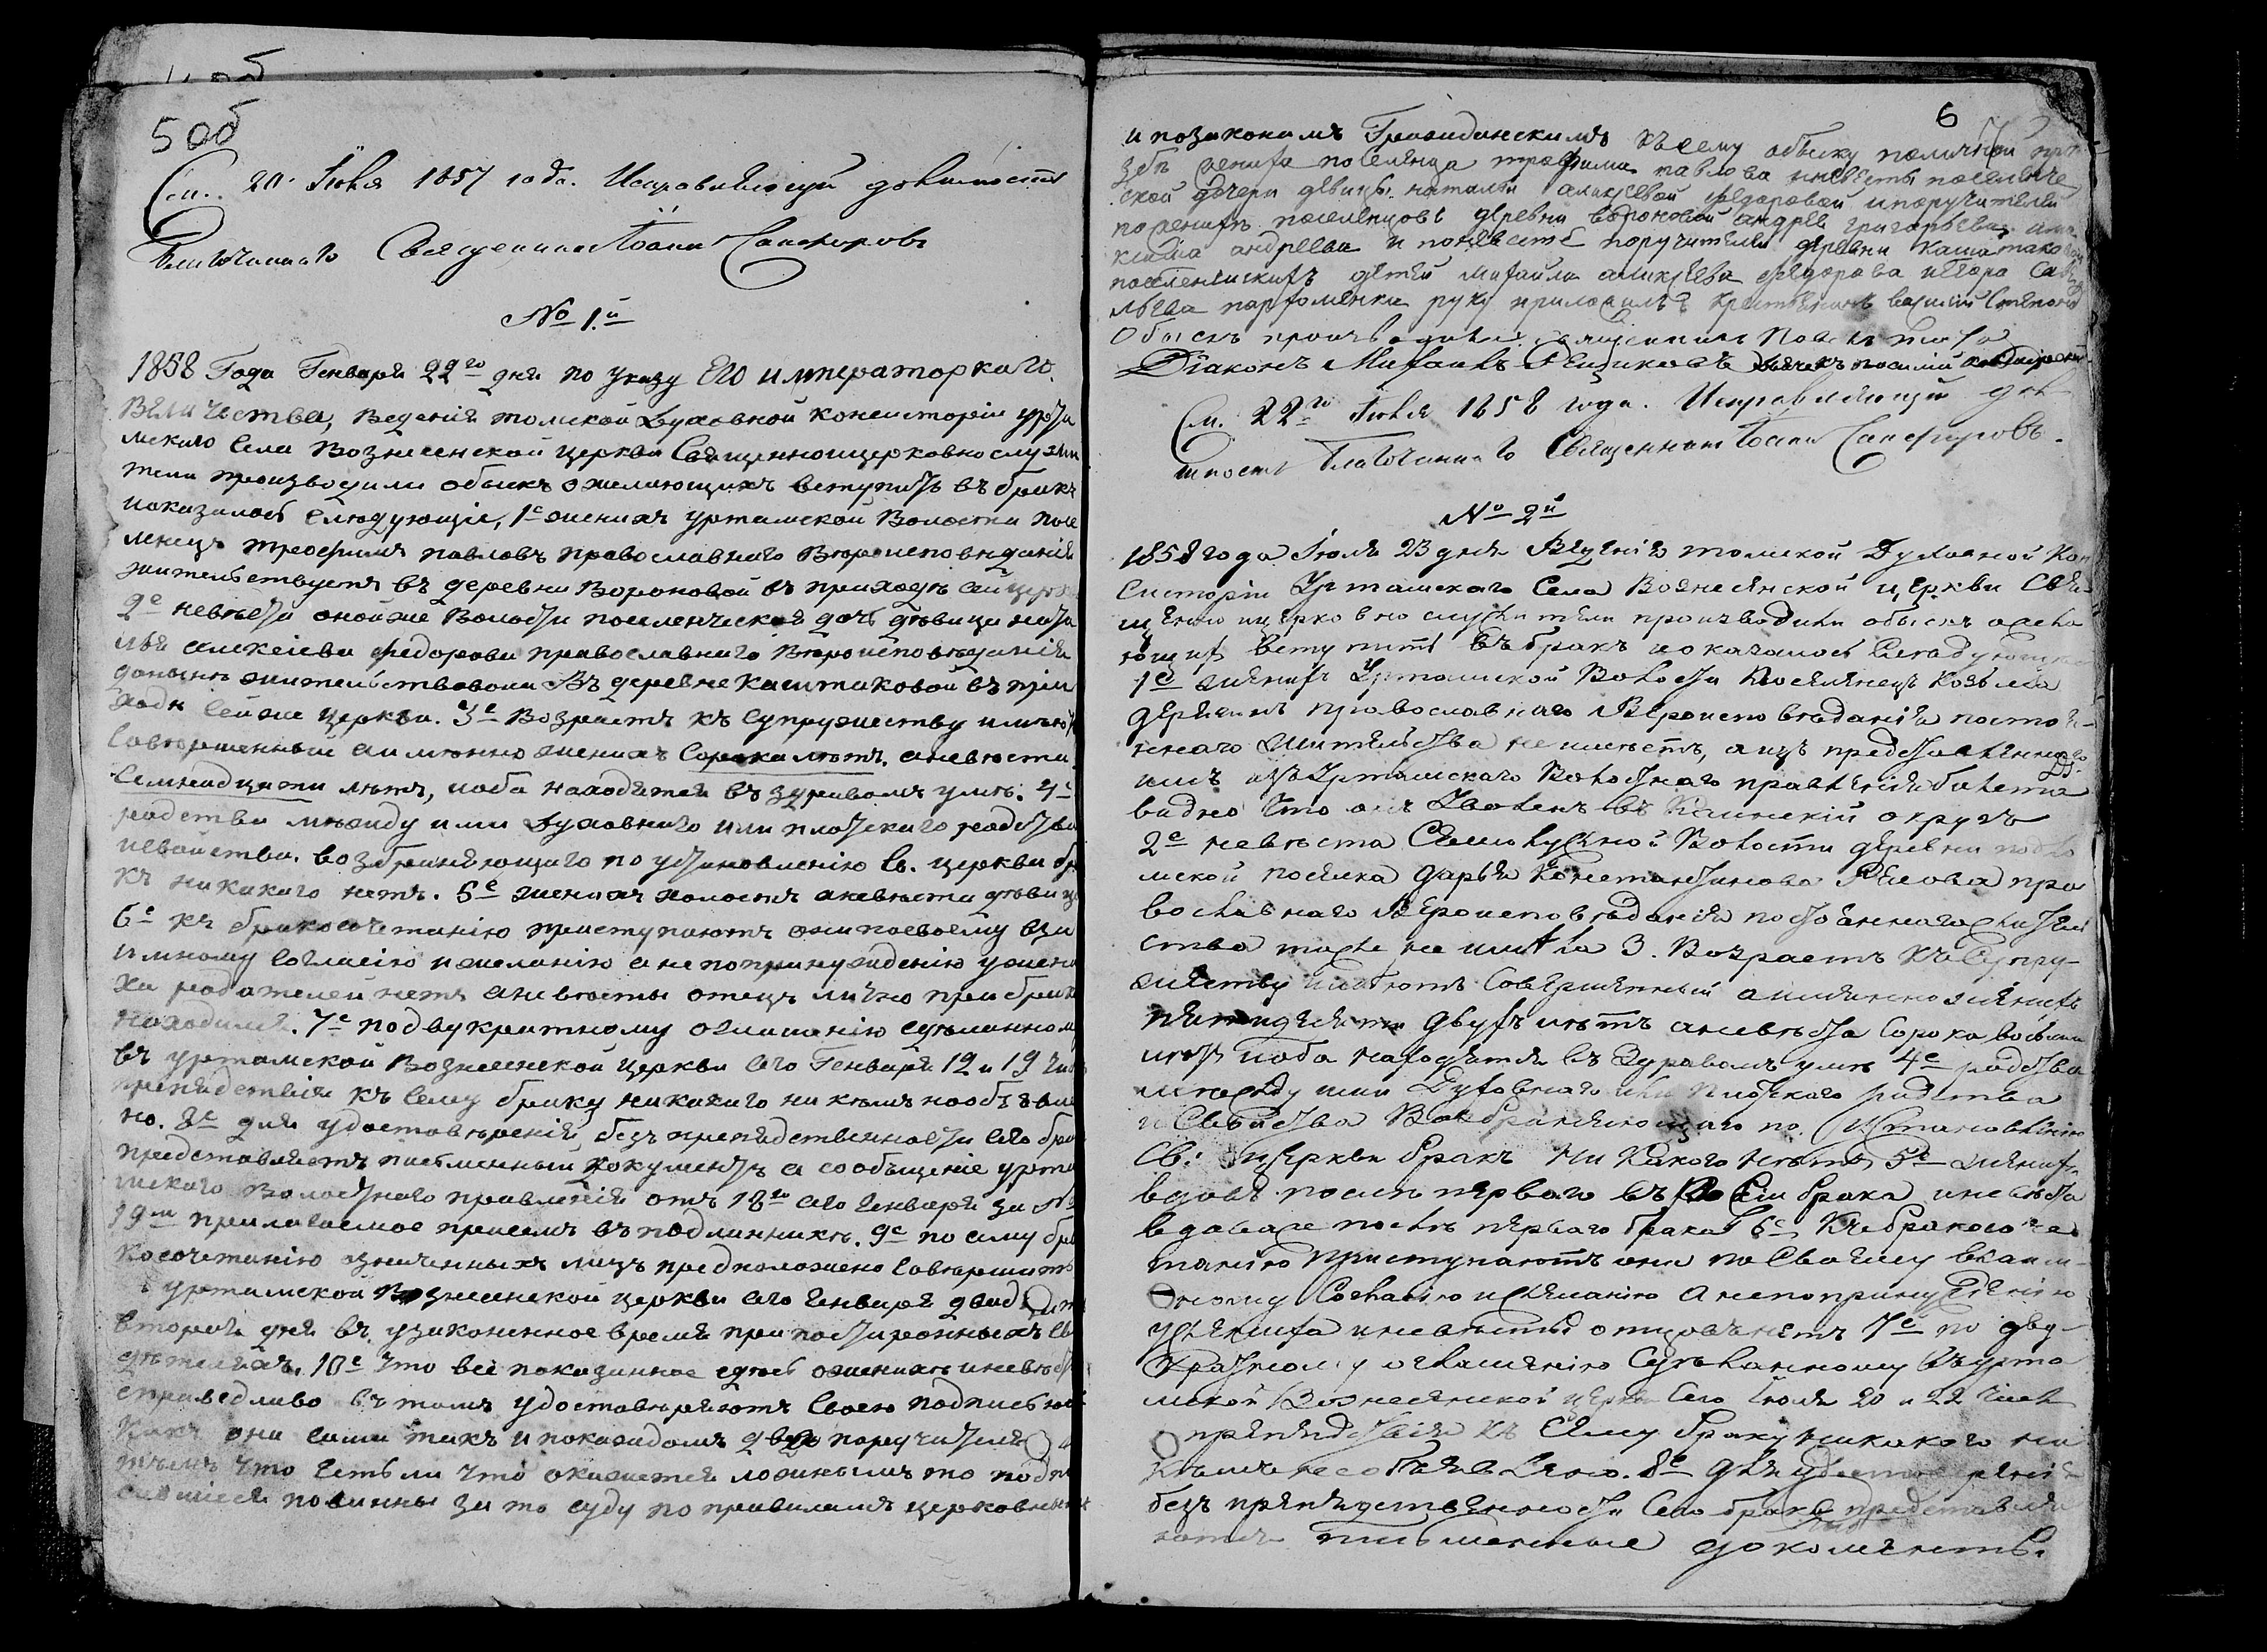 5об
См. 20. Июня 1857 года. Исправляющий должность
Благочиннаго Священник Иоанн Сапфировъ
№ 1.й
1858 Года Генваря 22го дня по указу Его императорскаго
Величества, Ведения томской Духовной консистории урта
мскаго села Вознесенской церкви Священноицерковнослужи
тели производили обыскъ ожелающихъ вступить въ бракъ
иоказалось следующие, 1е женихъ уртамской Волости посе
ленецъ трофимъ павловъ православнаго Вероисповедания
жительствуетъ въ деревни Вороновой въ приходъ сей церк
2е невеста онойже Волости поселенческая дочь девица ната
лья алексеева федорова православнаго Вероисповедания
доныне жительствовала Въ деревне каштаковой въ при
ходе сейже церкви. 3е Возрастъ къ супружеству имеют
Совершенный аименно женихъ сорока летъ, аневеста
Семнадцати летъ, иоба находятся въ здравомъ уме. 4е
родства между ими Духовнаго или плотскаго родства
исвойства. возбраняющаго по установлению Св. церкви бра
къ никакого нетъ. 5е женихъ холостъ аневеста девица
6е къ бракосочетанию приступаютъ они посвоему вза
имному согласию ижеланию анепопринуждению ужени
ха родителей нетъ аневесты отецъ лично при браке
находился. 7е подвукратному оглашению сделанному
въ уртамской Вознесенской церкви сего Генваря 12 и 19 чис
препядствия къ сему браку никакого никемъ необъявле
но. 8е для удостоверения безъ препядственности сего бра
представляетъ письменный документъ а сообщение урта
мскаго Волостнаго правления отъ 18го сего Генваря за №
19м прилагаемое присемъ въ подлиннике. 9е по сему бра
косочетанию означенныхъ лицъ предположено совершить
в уртамской Вознесенской церкви сего Генваря двадцать
второго дня въ узаконенное время при постороннихъ св
детеляхъ. 10е Что все показанное здесь ожених иневесте
справедливо въ томъ удостоверяютъ Своею подписью
какъ они сами такъ и покаждомъ два поручителя с
темъ что естьли что окажется ложнымъ то подпи
савшиеся повинны за то суду по правиламъ церковным
6
и позаконамъ Гражданскимъ къ сему обыску
жениха поселенца трофима павлова иневесты поселенче
ской дочери девицы натальи алексеевой федоровой ипоручителей
поженихе поселенцовъ деревни вороновой андрея григорьева
андреева и поневесте поручители деревни каштаковой
поселенческихъ детей михайла алексеева федорова иегора Саве
льева пархоменка руку приложилъ крестьянинъ василий Степанов
Обыскъ производили: священникъ Павелъ
Диаконъ Михаилъ
См. 22го Июля 1858 года. Исправляющий дол
жность Благочиннаго Священник Иоанн Сапфировъ.
№ 2й
1858 года Июля 23 дня Ведения томской Духовной Кон
систории Уртамскаго Села Вознесенской церкви Свя
щенно ицерковно служители производили обыскъ ожела
ющих вступить въ бракъ иоказалось Следующее
1е жених Уртамской Волости Поселенец Козьма
православнаго Вероисповедания посто
ннаго жительства неимеетъ, аизъ представленнаго
имъ изъ Уртамскаго Волостнаго правления билета
видно что онъ Уволенъ въ Каинский округъ
2е невеста Семилужной Волости деревни подло
мской поселка дарья Константинова пра
вославнаго Вероисповедания постояннаго житель
ства также не имела 3. Возрастъ къ Супру-
жеству имеютъ Совершенный аименно жених
пятидесяти двухъ летъ аневеста Сорока восьми
летъ иоба находятся въ Здравомъ уме 4е родства
между ими Духовнаго или плотскаго родства
и Свойства Возбраняющаго по Установлению
Св: церкви бракъ Ни Какого нетъ 5е жених
вдовъ после перваго брака иневеста
вдова же после перваго брака 6е Къ бракосоче
танию приступаютъ они по Своему взаим-
ному Согласию ижеланию Анепопринуждению
ужениха иневесты отцовъ нетъ 7е по дву-
кратному оглашению Сделанному въ урта
мской Вознесенской церкви Сего Июля 20 и 22 числ
препядствия къ Сему браку никакого ни
кемъ необъявлено. 8е Для удостоверения
безъ препядственности Сего брака представля
ютъ письменные докоменты.